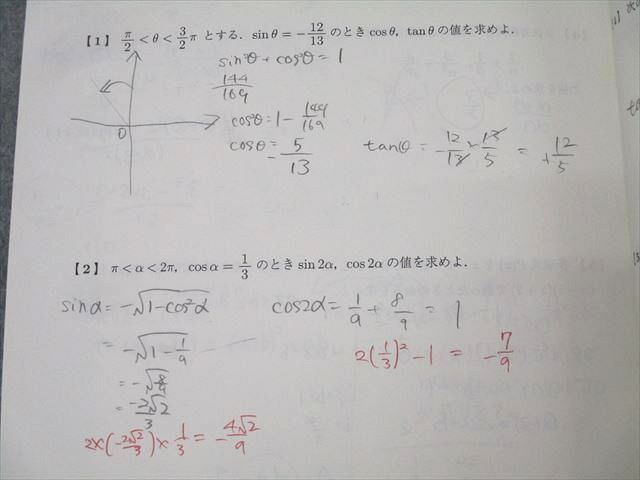 【1】 π/2 < θ < 3/2 π とする. sin θ = -12/13 のとき cos θ, tan θ の値を求めよ.
sin²θ + cos²θ = 1
144/169
cos²θ = 1 - 144/169
cosθ = -5/13
tanθ = -12/13 × 13/5 = +12/5
O
【2】 π < α < 2π, cos α = 1/3 のとき sin 2α, cos 2α の値を求めよ.
sinα = -√1-cos²α
cos2α = 1/9 + 8/9 = 1
= -√1 - 1/9
2(1/3)² - 1 = -7/9
= -√8/9
= -2√2/3
2×(-2√2/3)×1/3 = -4√2/9